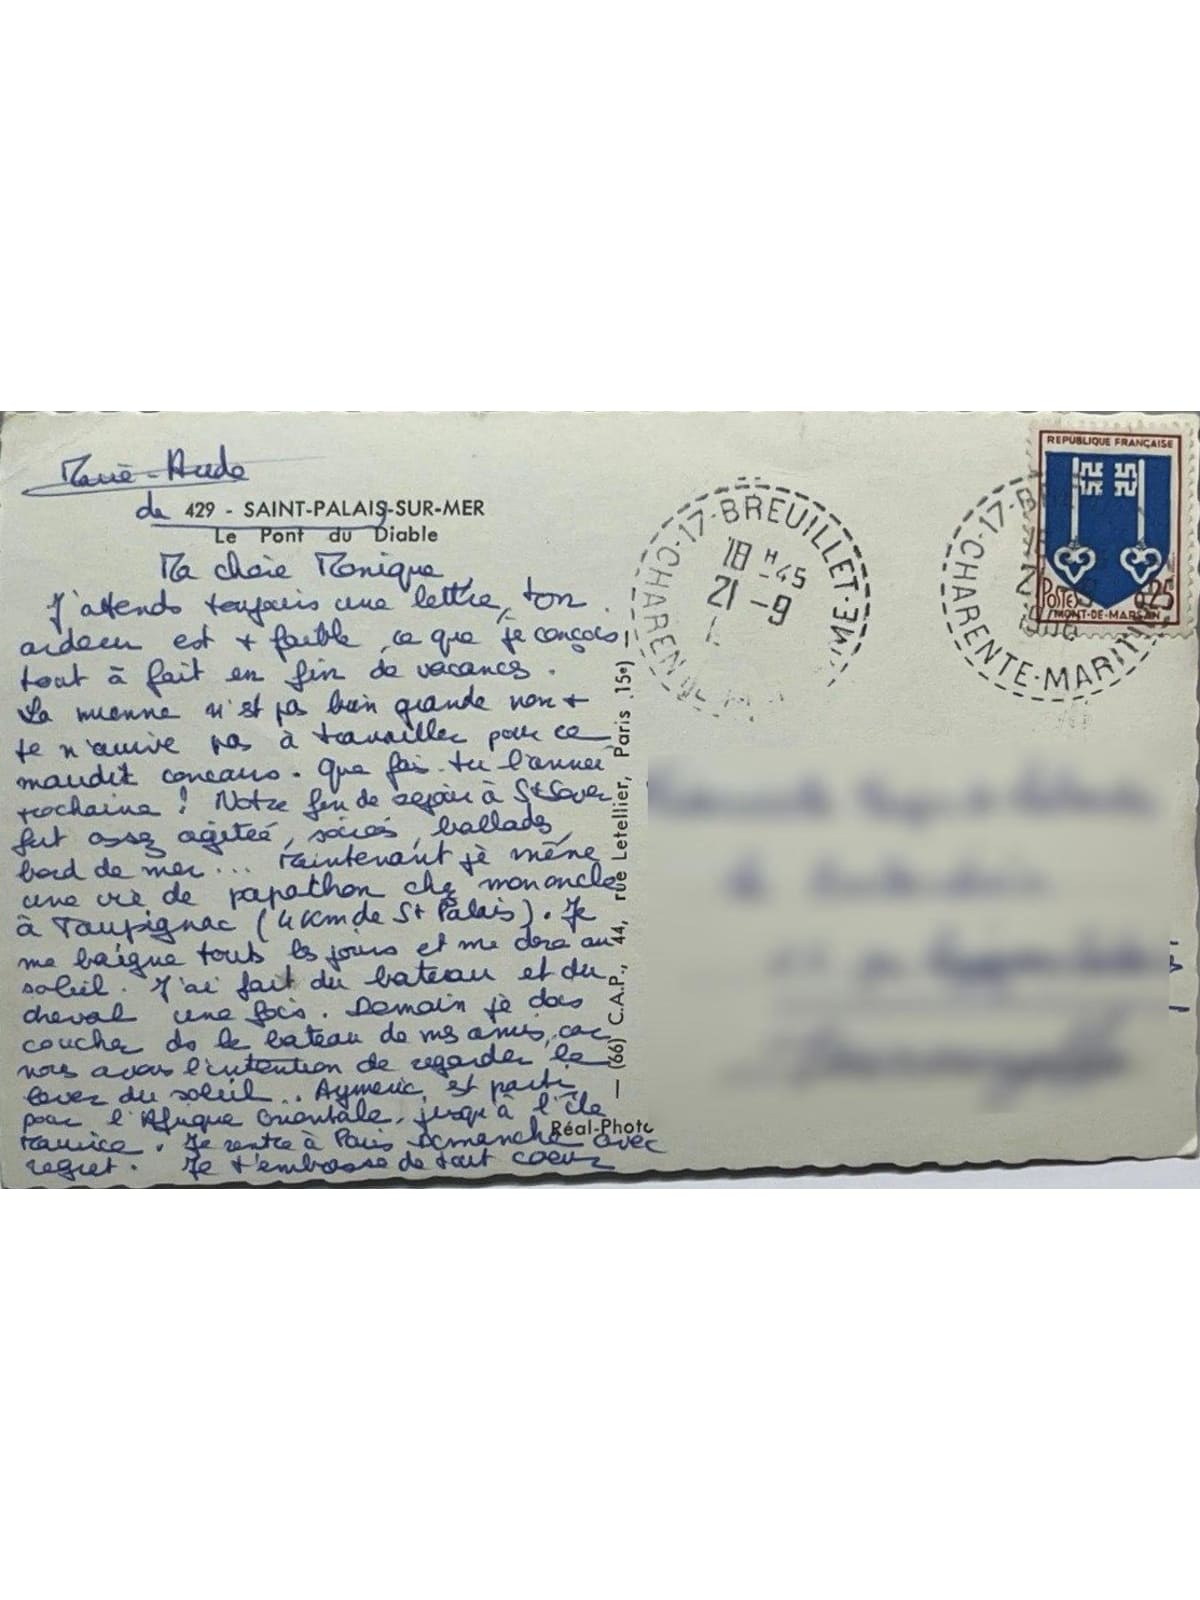 Marie-Aude
de 429 - SAINT-PALAIS-SUR-MER
Le Pont du Diable
Ma chère Monique,
J'attends toujours une lettre, ton
ardeur est + faible, ce que je conçois
tout à fait en fin de vacances.
La mienne n'est pas bien grande non +
je n'arrive pas à travailler pour ce
maudit concours. Que fais-tu l'année
prochaine ! Notre fin de séjour à St Sever
fut assez agitée, soirées, ballades,
bord de mer... Maintenant je mène
une vie de papathon chez mon oncle
à Taupignac (4 km de St Palais). Je
me baigne touts les jours et me dore au
soleil. J'ai fait du bateau et du
cheval une fois. Demain je dois
coucher ds le bateau de mes amis, car
nous avons l'intention de regarder le
lever du soleil.. Aymeric, est parti
pour l'Afrique Orientale, jusqu'à l'île
Maurice. Je rentre à Paris Dimanche avec
regret. Je t'embrasse de tout coeur
Réal-Photo
— (66) C.A.P., 44, rue Letellier, Paris 15e) —
C-17-BREUILLET-
CHARENTE
18 H -45
21 -9
RÉPUBLIQUE FRANÇAISE
POSTES
0,25
MONT-DE-MARSAN
C-17-B
CHARENTE-MARITIME